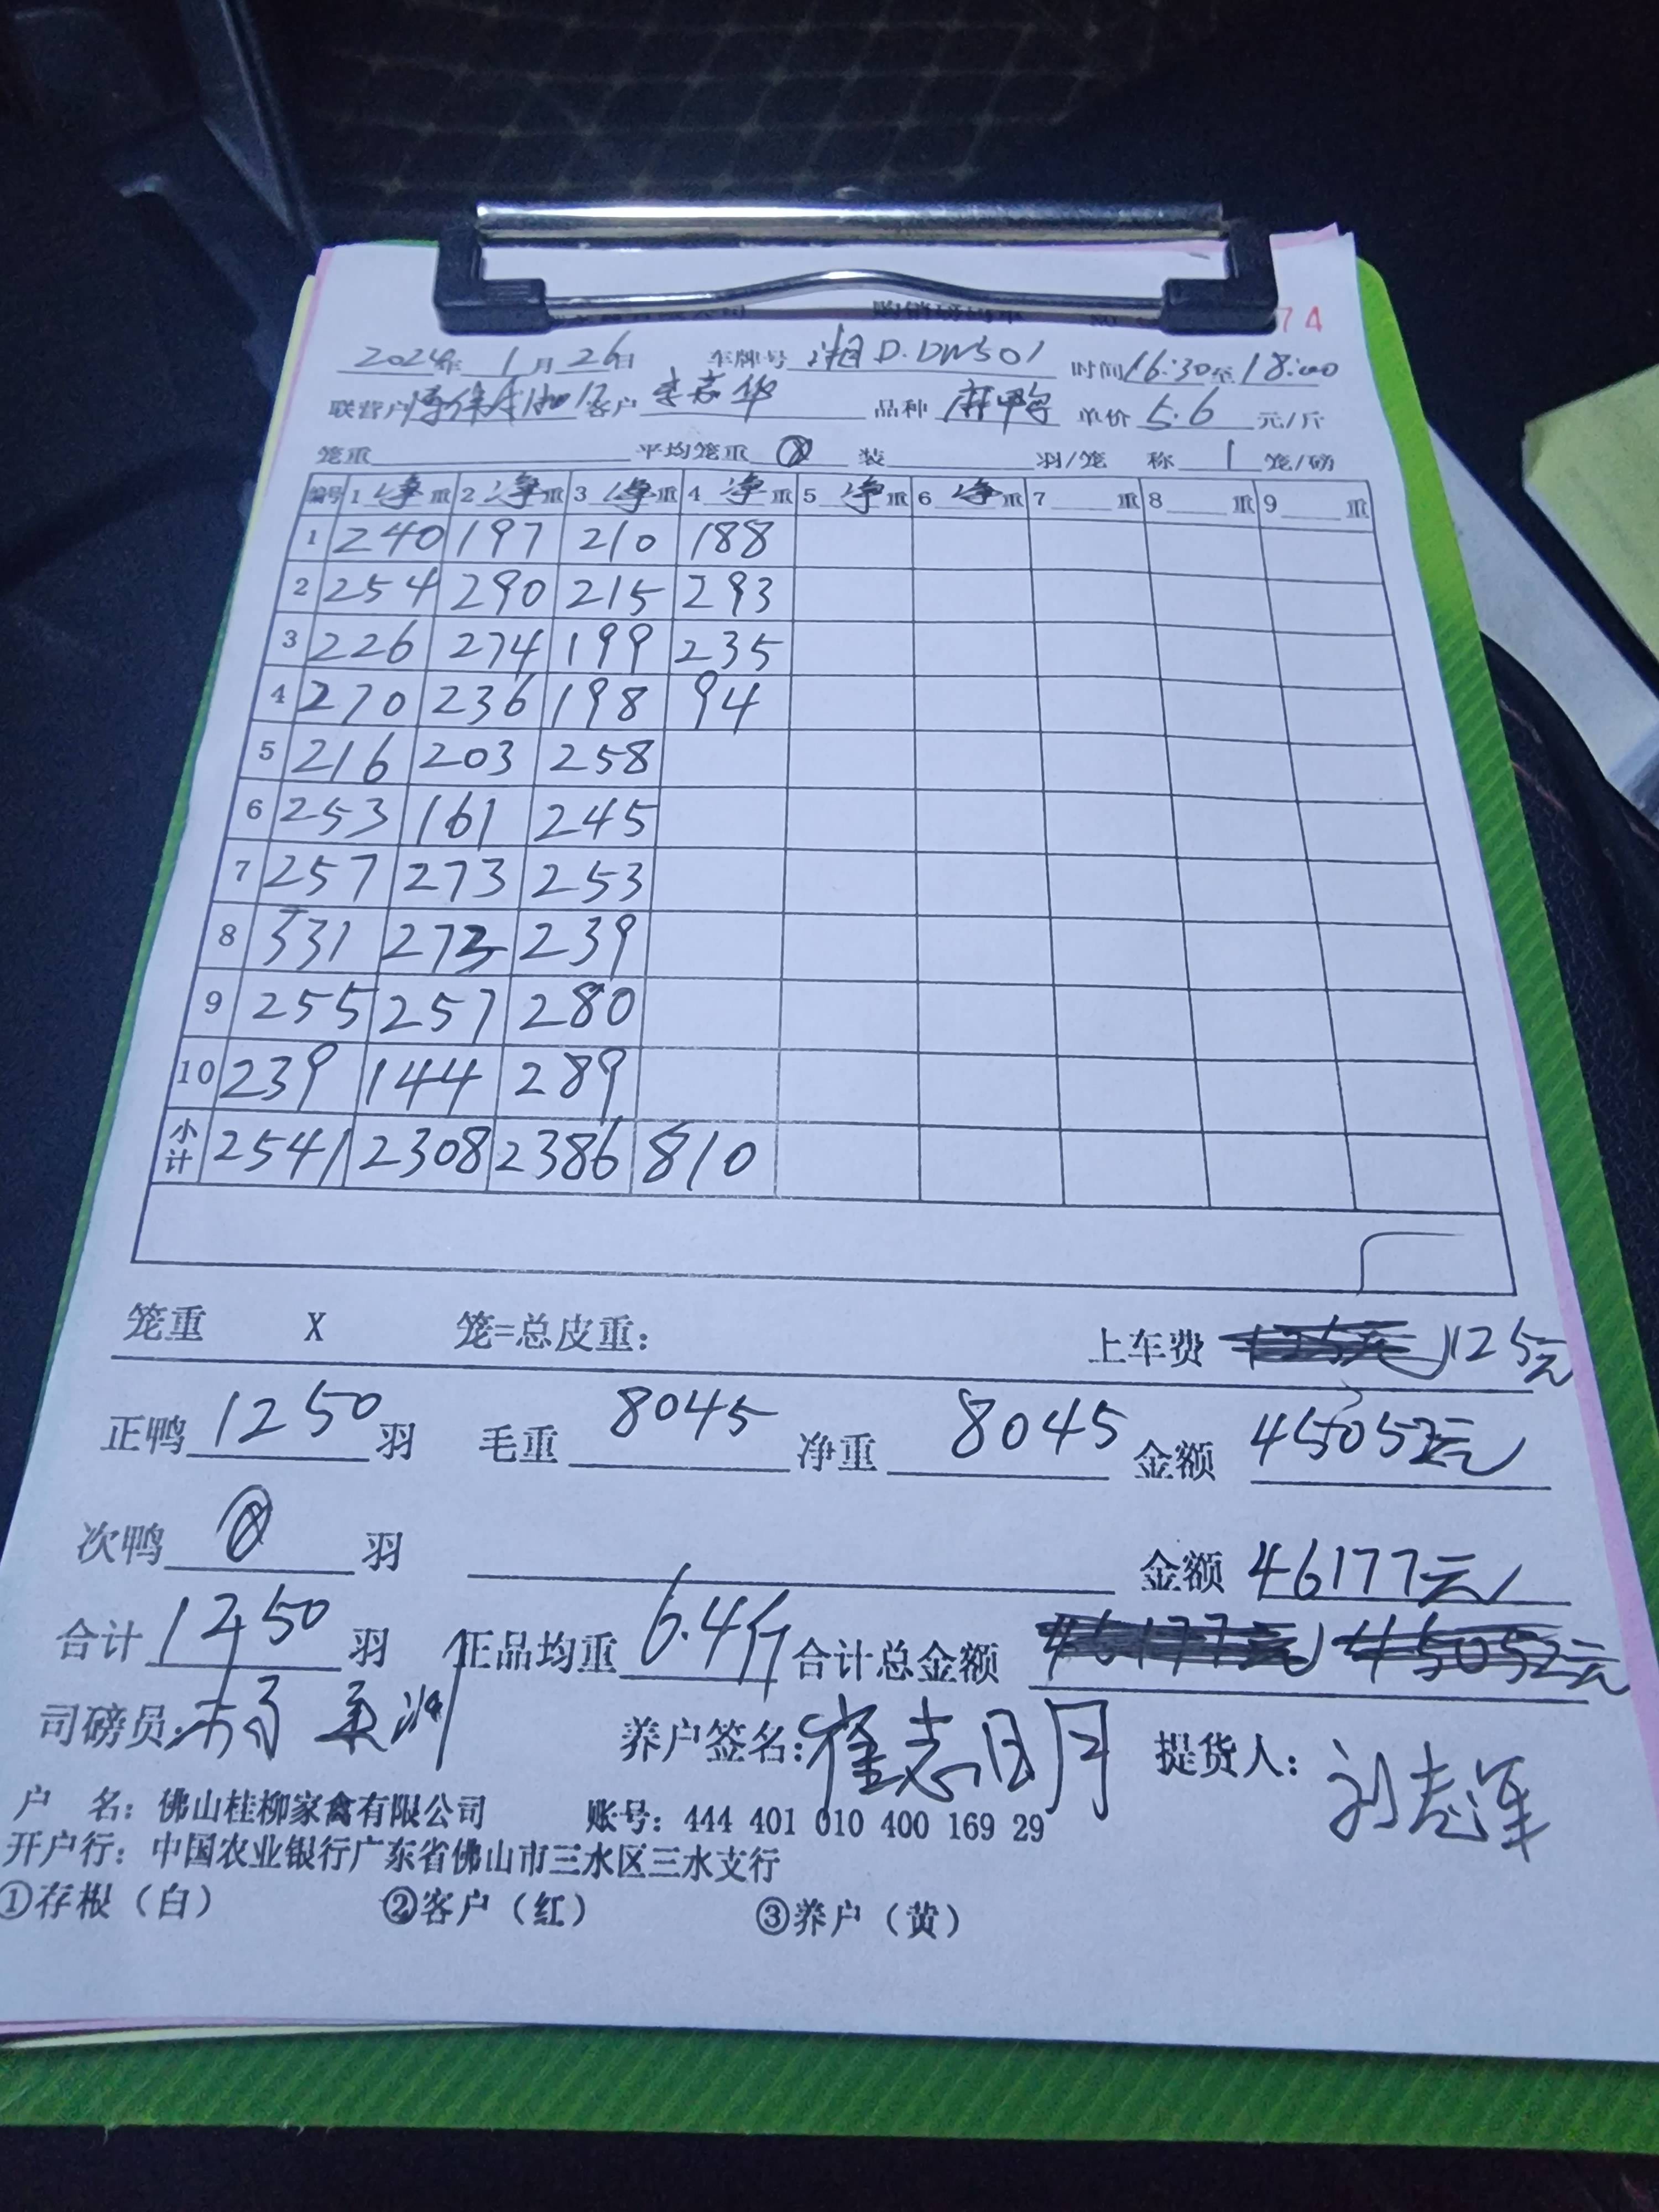 购销磅码单 74
2024年 1月 26日 车牌号 湘D.DW501 时间 16:30至18:00
联营户 客户 李志华 品种 麻鸭 单价 5.6 元/斤
笼重 平均笼重 ⊗ 装 羽/笼 称 1 笼/磅
编号 1 净重 2 净重 3 净重 4 净重 5 净重 6 净重 7 重 8 重 9 重
1 240 197 210 188
2 254 290 215 293
3 226 274 199 235
4 270 236 198 94
5 216 203 258
6 253 161 245
7 257 273 253
8 331 273 239
9 255 257 280
10 239 144 289
小计 2541 2308 2386 810
笼重 X 笼=总皮重: 上车费 1125元
正鸭 1250 羽 毛重 8045 净重 8045 金额 45052元
次鸭 ⊗ 羽 金额 46177元
合计 1250 羽 正品均重 6.4斤 合计总金额 46177元 45052元
司磅员: 养户签名: 崔志明 提货人: 刘志军
户 名: 佛山桂柳家禽有限公司 账号: 444 401 010 400 169 29
开户行: 中国农业银行广东省佛山市三水区三水支行
①存根（白） ②客户（红） ③养户（黄）